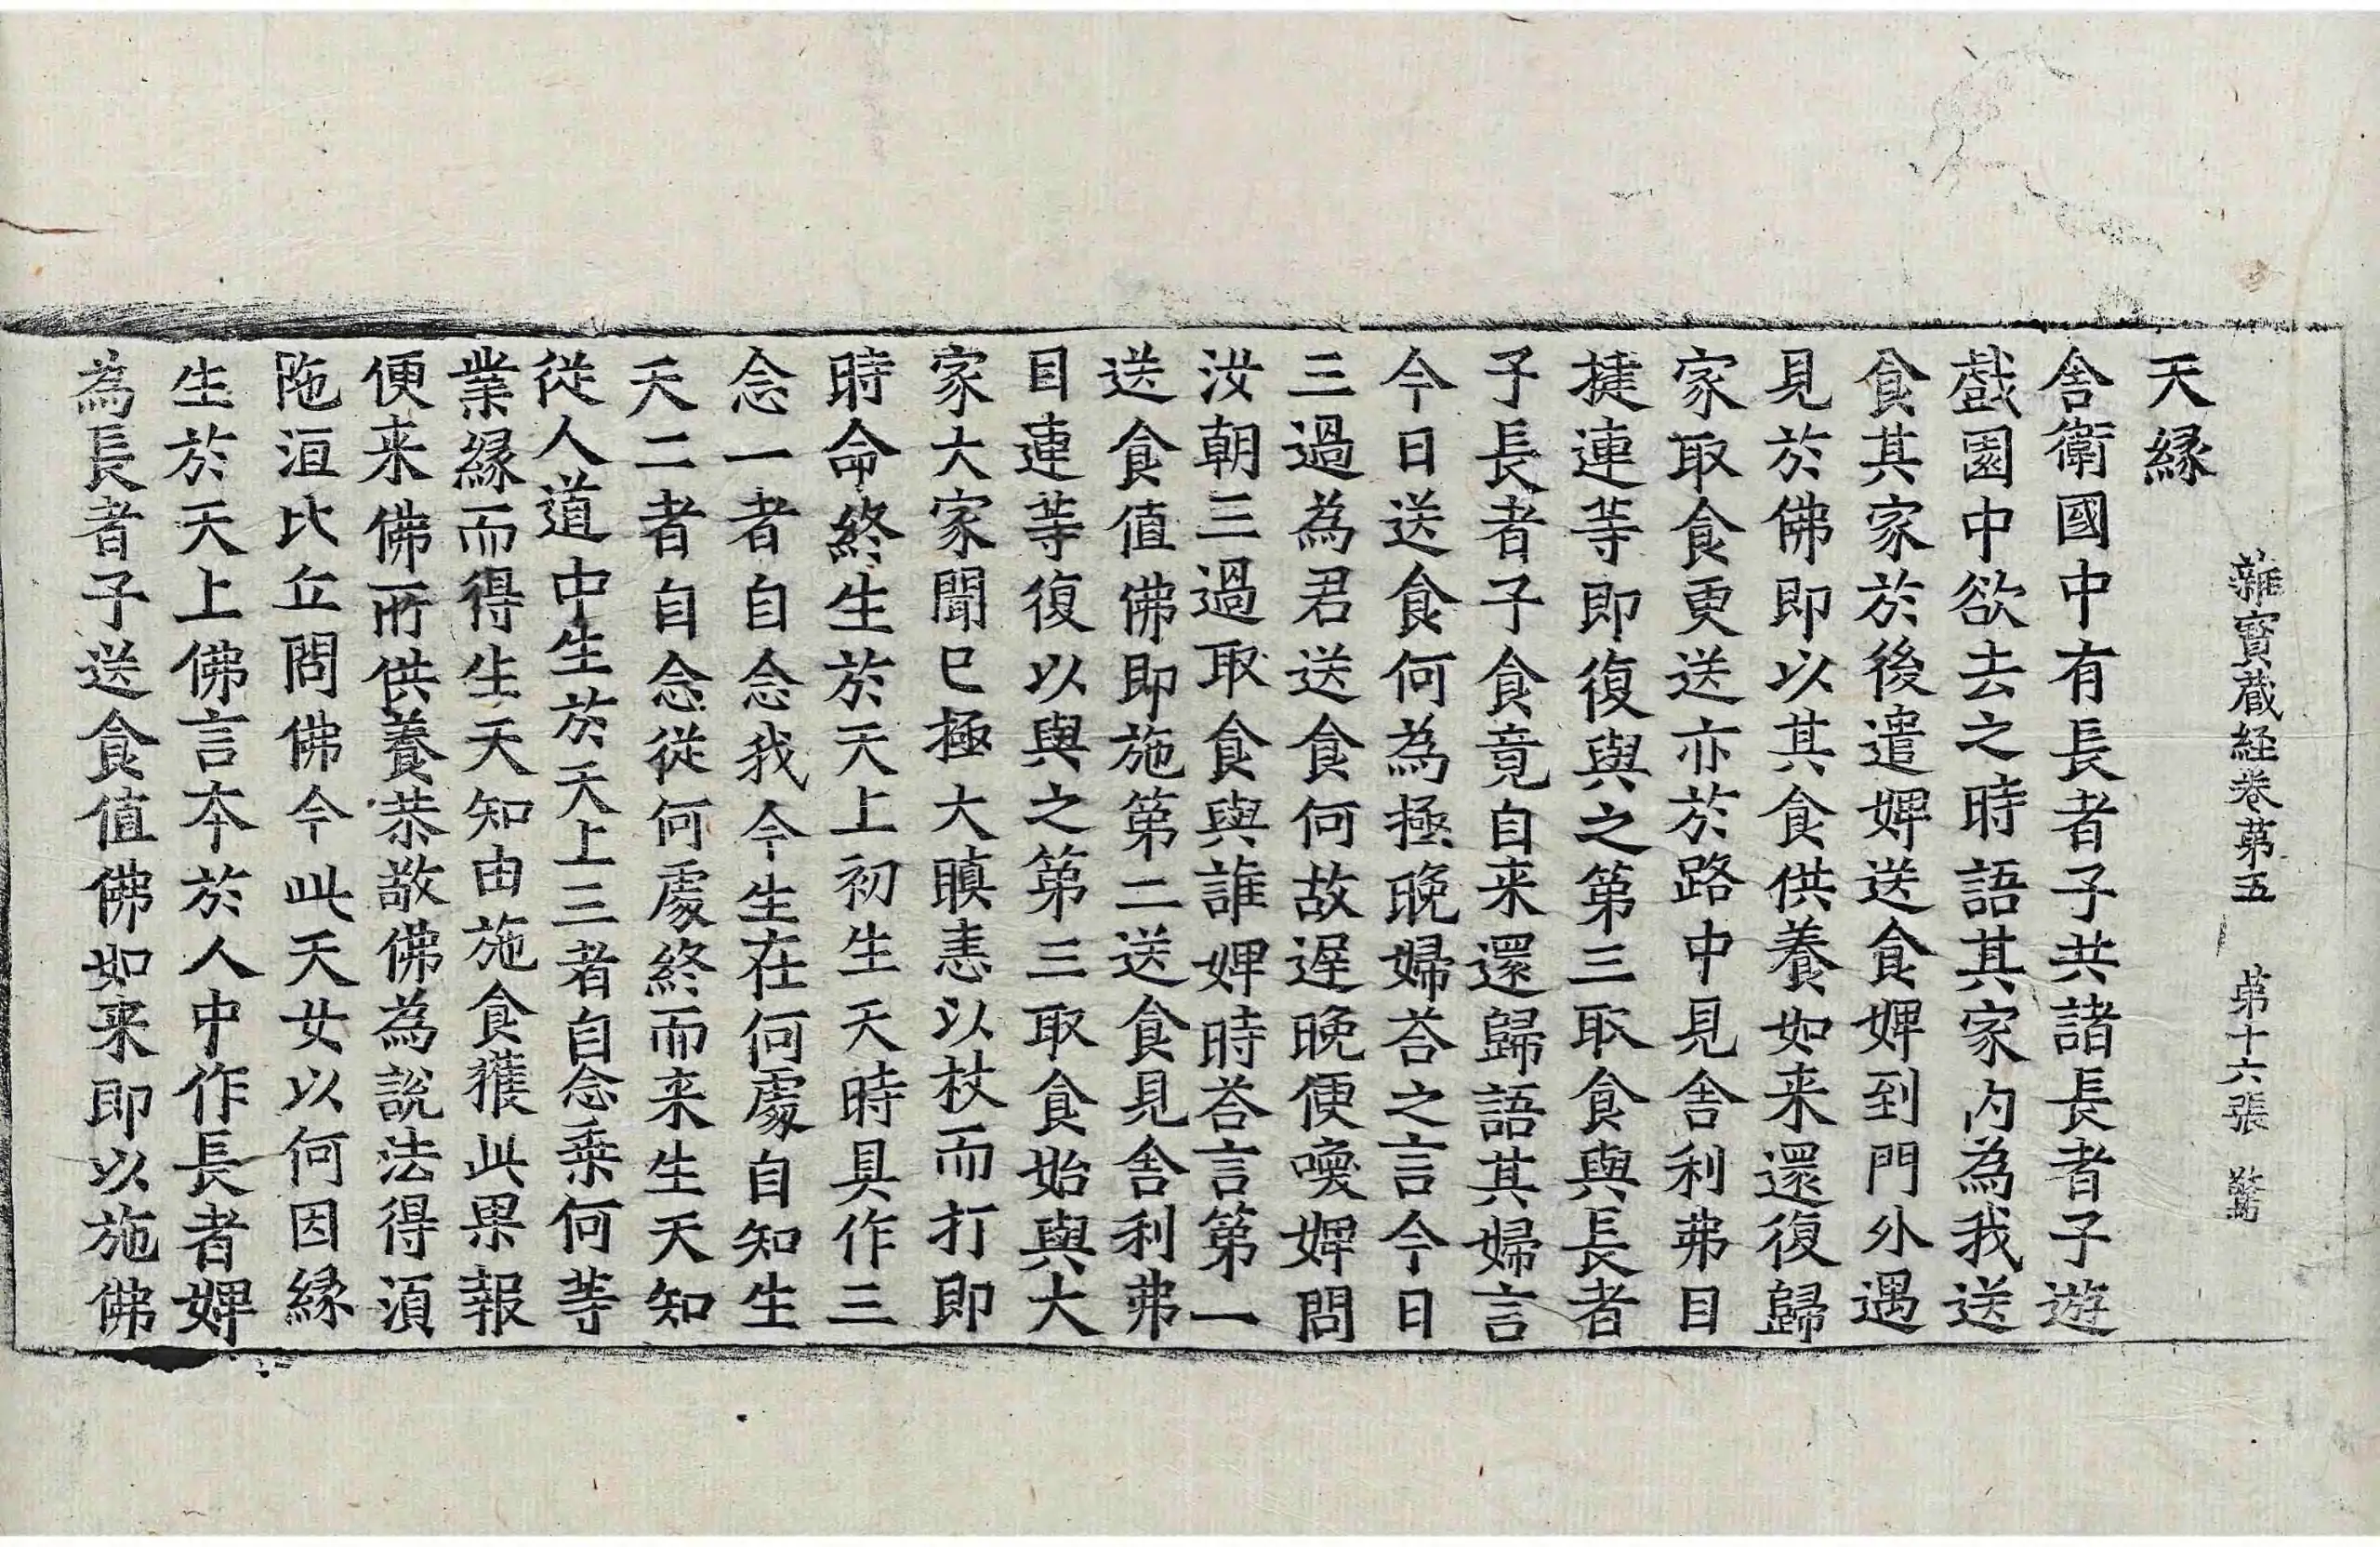 雜寳蔵経卷苐五　苐十六張　驚
天縁
舎衛國中有長者子共諸長者子遊
戯園中欲去之時語其家内為我送
食其家於後遣婢送食婢到門外遇
見於佛即以其食供養如来還復歸
家取食更送亦於路中見舎利弗目
揵連等即復與之第三取食與長者
子長者子食竟自来還歸語其婦言
今日送食何為極晚婦荅之言今日
三過為君送食何故遅晚便喚婢問
汝朝三過取食與誰婢時荅言第一
送食值佛即施第二送食見舎利弗
目連等復以與之第三取食始與大
家大家聞已極大瞋恚以杖而打即
時命終生於天上初生天時具作三
念一者自念我今生在何處自知生
天二者自念從何處終而来生天知
從人道中生於天上三者自念乗何等
業縁而得生天知由施食獲此果報
便来佛所供養恭敬佛為說法得湏
陁洹比丘問佛今此天女以何因縁
生於天上佛言夲於人中作長者婢
為長者子送食值佛如来即以施佛